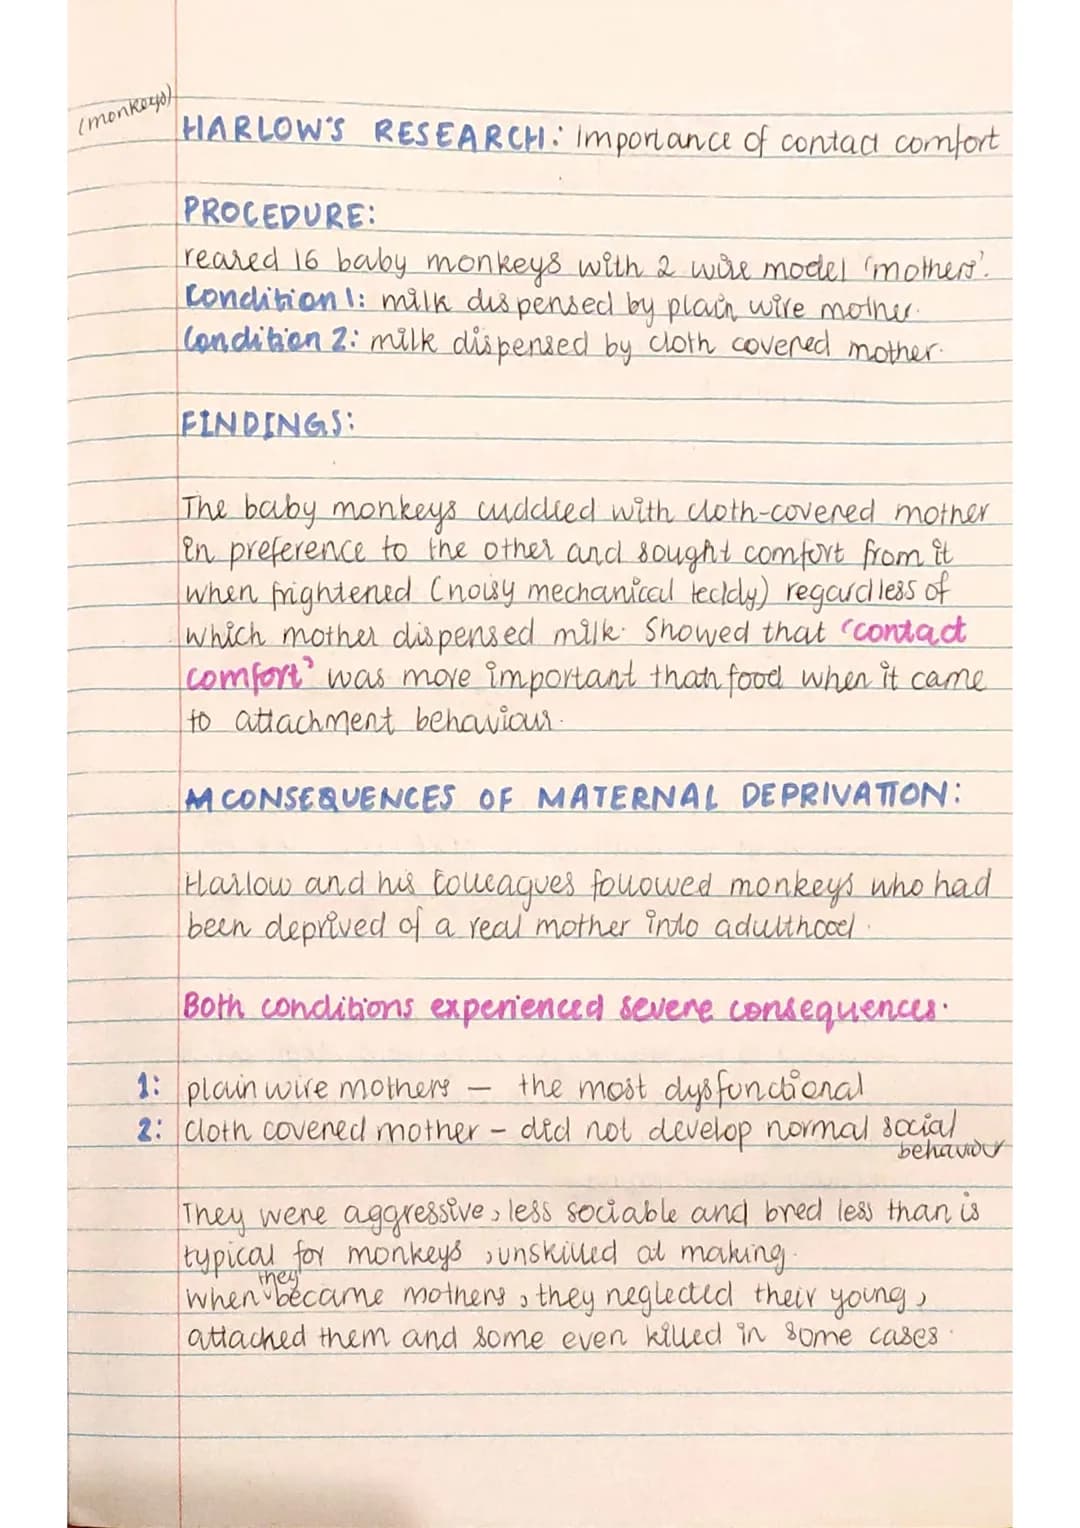 (monkeys)
HARLOW'S RESEARCH: Importance of contact comfort
PROCEDURE:
reared 16 baby monkeys with 2 wire model 'mothers'.
Condition 1: milk dispensed by plain wire mother.
Condition 2: milk dispensed by cloth covered mother.
FINDINGS:
The baby monkeys cuddled with cloth-covered mother
in preference to the other and sought comfort from it
when frightened (noisy mechanical teddy) regardless of
which mother dispensed milk. Showed that 'contact
comfort' was more important than food when it came
to attachment behaviour.
CONSEQUENCES OF MATERNAL DEPRIVATION:
Harlow and his colleagues followed monkeys who had
been deprived of a real mother into adulthood.
Both conditions experienced severe consequences.
1: plain wire mothers – the most dysfunctional
2: cloth covered mother – did not develop normal social
behaviour
They were aggressive, less sociable and bred less than is
typical for monkeys, unskilled at making.
when they became mothers, they neglected their young,
attacked them and some even killed in some cases.